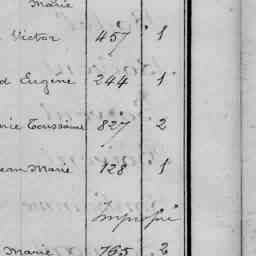 Marie
Victor 457 1
d Eugène 244 1
nie Toussaine 827 2
ean Marie 128 1
Impropre
Marie 765 2